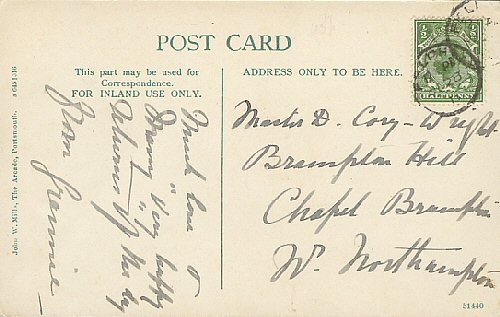 POST CARD
This part may be used for
Correspondence.
FOR INLAND USE ONLY.
ADDRESS ONLY TO BE HERE.
½ ½
HALFPENNY
Much love &
Many Very happy
Returns of the day
From Grannie
Master D. Cory-Wright
Brampton Hill
Chapel Brampton
Nr. Northampton
John W. Mills, The Arcade, Portsmouth.
51440